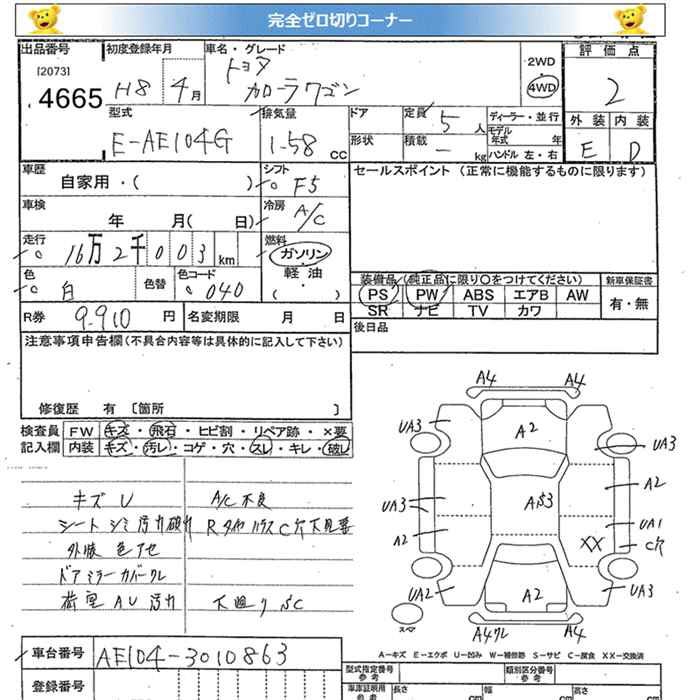 完全ゼロ切りコーナー
出品番号 初度登録年月 車名・グレード 評価点
[2073]
4665
H8 4月
トヨタ
カローラワゴン
2WD
4WD
2
型式 排気量 ドア 定員 ディーラー・並行 外装 内装
E-AE104G 1-58 cc
5人
モデル年式 年
形状 積載 - kg ハンドル 左・右
E D
車歴 シフト セールスポイント (正常に機能するものに限ります)
自家用・( ) F5
車検 冷房
年 月( 日) A/C
走行 燃料
16万2千003 km ガソリン・軽油・( )
色 色替 色コード
白 040
装備品 (純正品に限り○をつけてください) 新車保証書
PS PW ABS エアB AW 有・無
SR ナビ TV カワ
R券 9-910 円 名変期限 月 日
後日品
注意事項申告欄(不具合内容等は具体的に記入して下さい)
修復歴 有 [箇所 ]
検査員 FW キズ・飛石・ヒビ割・リペア跡・×要
記入欄 内装 キズ・汚レ・コゲ・穴・スレ・キレ・破レ
キズ U A/C不良
シート シミ 汚れ 破れ
外装 色アセ
ドアミラーカバークレ
荷室 AU 汚れ 下廻り SC
A4 A4
UA3 A2 UA3
A2
UA3 A53 UA1
A2 XX C穴
UA2 A2 UA3
A4 A4
スペア
A-キズ E-エクボ U-凹み W-補修跡 S-サビ C-腐食 XX-交換済
車台番号 AE104-3010863
登録番号
型式指定番号 参考 類別区分番号 参考
車庫証明用 参考 長さ cm 幅 cm 高さ cm